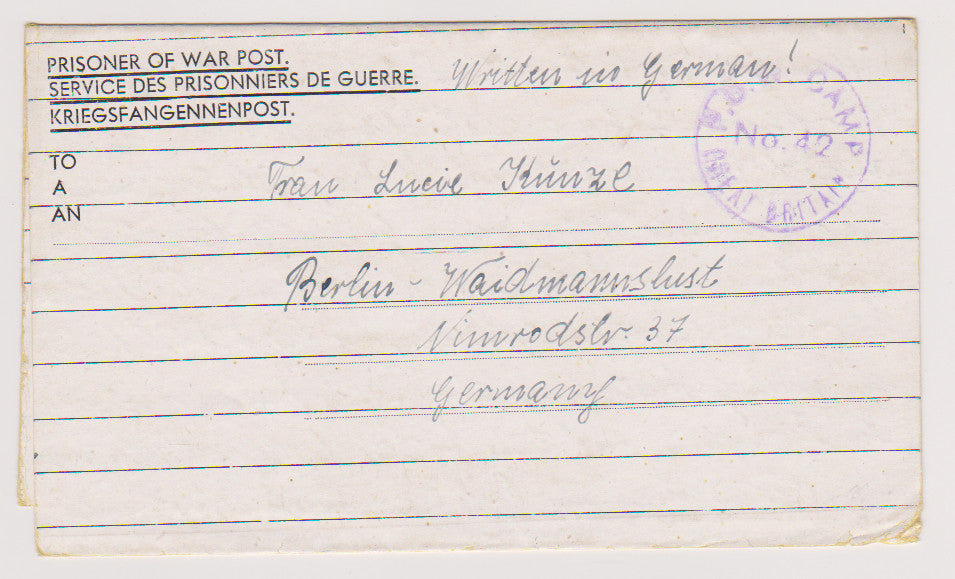 PRISONER OF WAR POST.
SERVICE DES PRISONNIERS DE GUERRE.
KRIEGSFANGENNENPOST.
Written in German!
P.O.W. CAMP
No. 42
GREAT BRITAIN
TO
A
AN
Frau Lucie Künzel
Berlin - Waidmannslust
Nimrodstr. 37
Germany